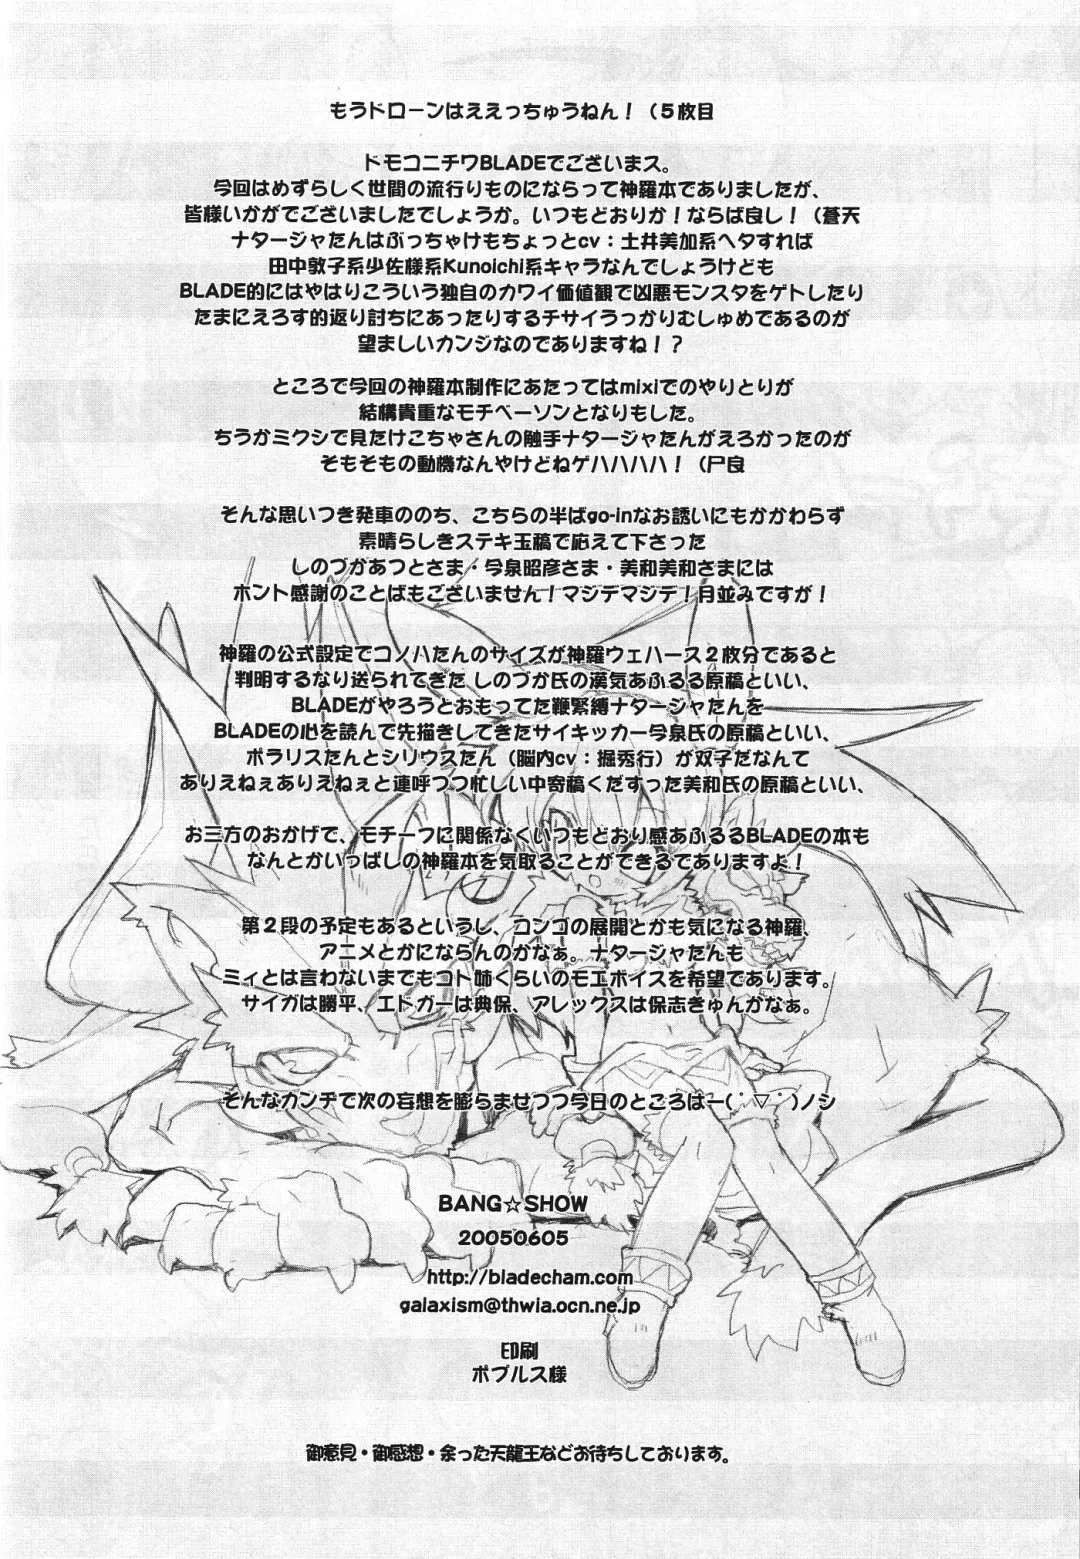 もうドローンはええっちゅうねん！（５枚目
ドモコニチワBLADEでございまス。
今回はめずらしく世間の流行りものにならって神羅本でありましたが、
皆様いかがでございましたでしょうか。いつもどおりか！ならば良し！（蒼天
ナタージャたんはぶっちゃけもちょっとcv：土井美加系ヘタすれば
田中敦子系少佐様系Kunoichi系キャラなんでしょうけども
BLADE的にはやはりこういう独自のカワイ価値観で凶悪モンスタをゲトしたり
たまにえろす的返り討ちにあったりするチサイうっかりむしゅめであるのが
望ましいカンジなのでありますね！？
ところで今回の神羅本制作にあたってはmixiでのやりとりが
結構貴重なモチベーソンとなりもした。
ちうかミクシで見たけこちゃさんの触手ナタージャたんがえろかったのが
そもそもの動機なんやけどねゲハハハハ！（尸良
そんな思いつき発車ののち、こちらの半ばgo-inなお誘いにもかかわらず
素晴らしきステキ玉稿で応えて下さった
しのづかあつとさま・今泉昭彦さま・美和美和さまには
ホント感謝のことばもございません！マジデマジデ！月並みですが！
神羅の公式設定でコノハたんのサイズが神羅ウェハース２枚分であると
判明するなり送られてきた しのづか氏の漢気あふるる原稿といい、
BLADEがやろうとおもってた鞭緊縛ナタージャたんを
BLADEの心を読んで先描きしてきたサイキッカー今泉氏の原稿といい、
ポラリスたんとシリウスたん（脳内cv：掘秀行）が双子だなんて
ありえねぇありえねぇと連呼しつつ忙しい中寄稿くだすった美和氏の原稿といい、
お三方のおかげで、モチーフに関係なくいつもどおり感あふるるBLADEの本も
なんとかいっぱしの神羅本を気取ることができるでありますよ！
第２段の予定もあるというし、コンゴの展開とかも気になる神羅、
アニメとかにならんのかなぁ。ナタージャたんも
ミィとは言わないまでもコト姉くらいのモエボイスを希望であります。
サイガは勝平、エドガーは典保、アレックスは保志きゅんかなぁ。
そんなカンヂで次の妄想を膨らませつつ今日のところはー(゜▽゜)ノシ
BANG☆SHOW
20050605
http://bladecham.com
galaxism@thwia.ocn.ne.jp
印刷
ポプルス様
御意見・御感想・余った天龍王などお待ちしております。